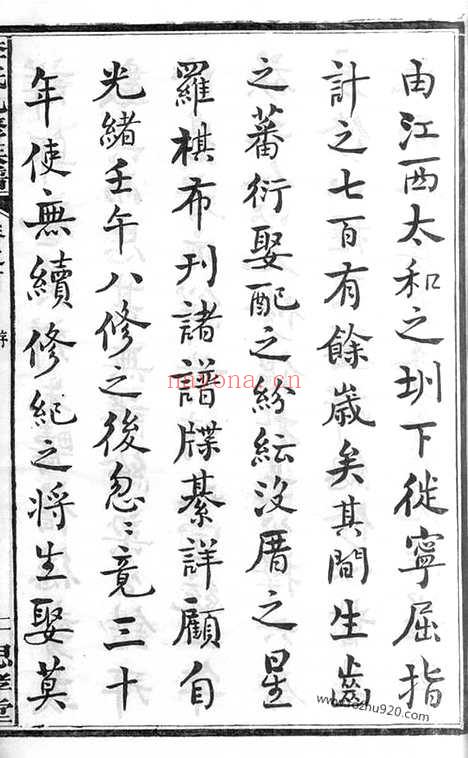 由江西太和之圳下徙寧屈指
計之七百有餘歲矣其間生齒
之蕃衍娶配之紛紜没厝之星
羅棋布刊諸譜牒綦詳顧自
光緒壬午八修之後忽〻竟三十
年使無續修紀之將生娶莫
nayona.cn
zhu920.com